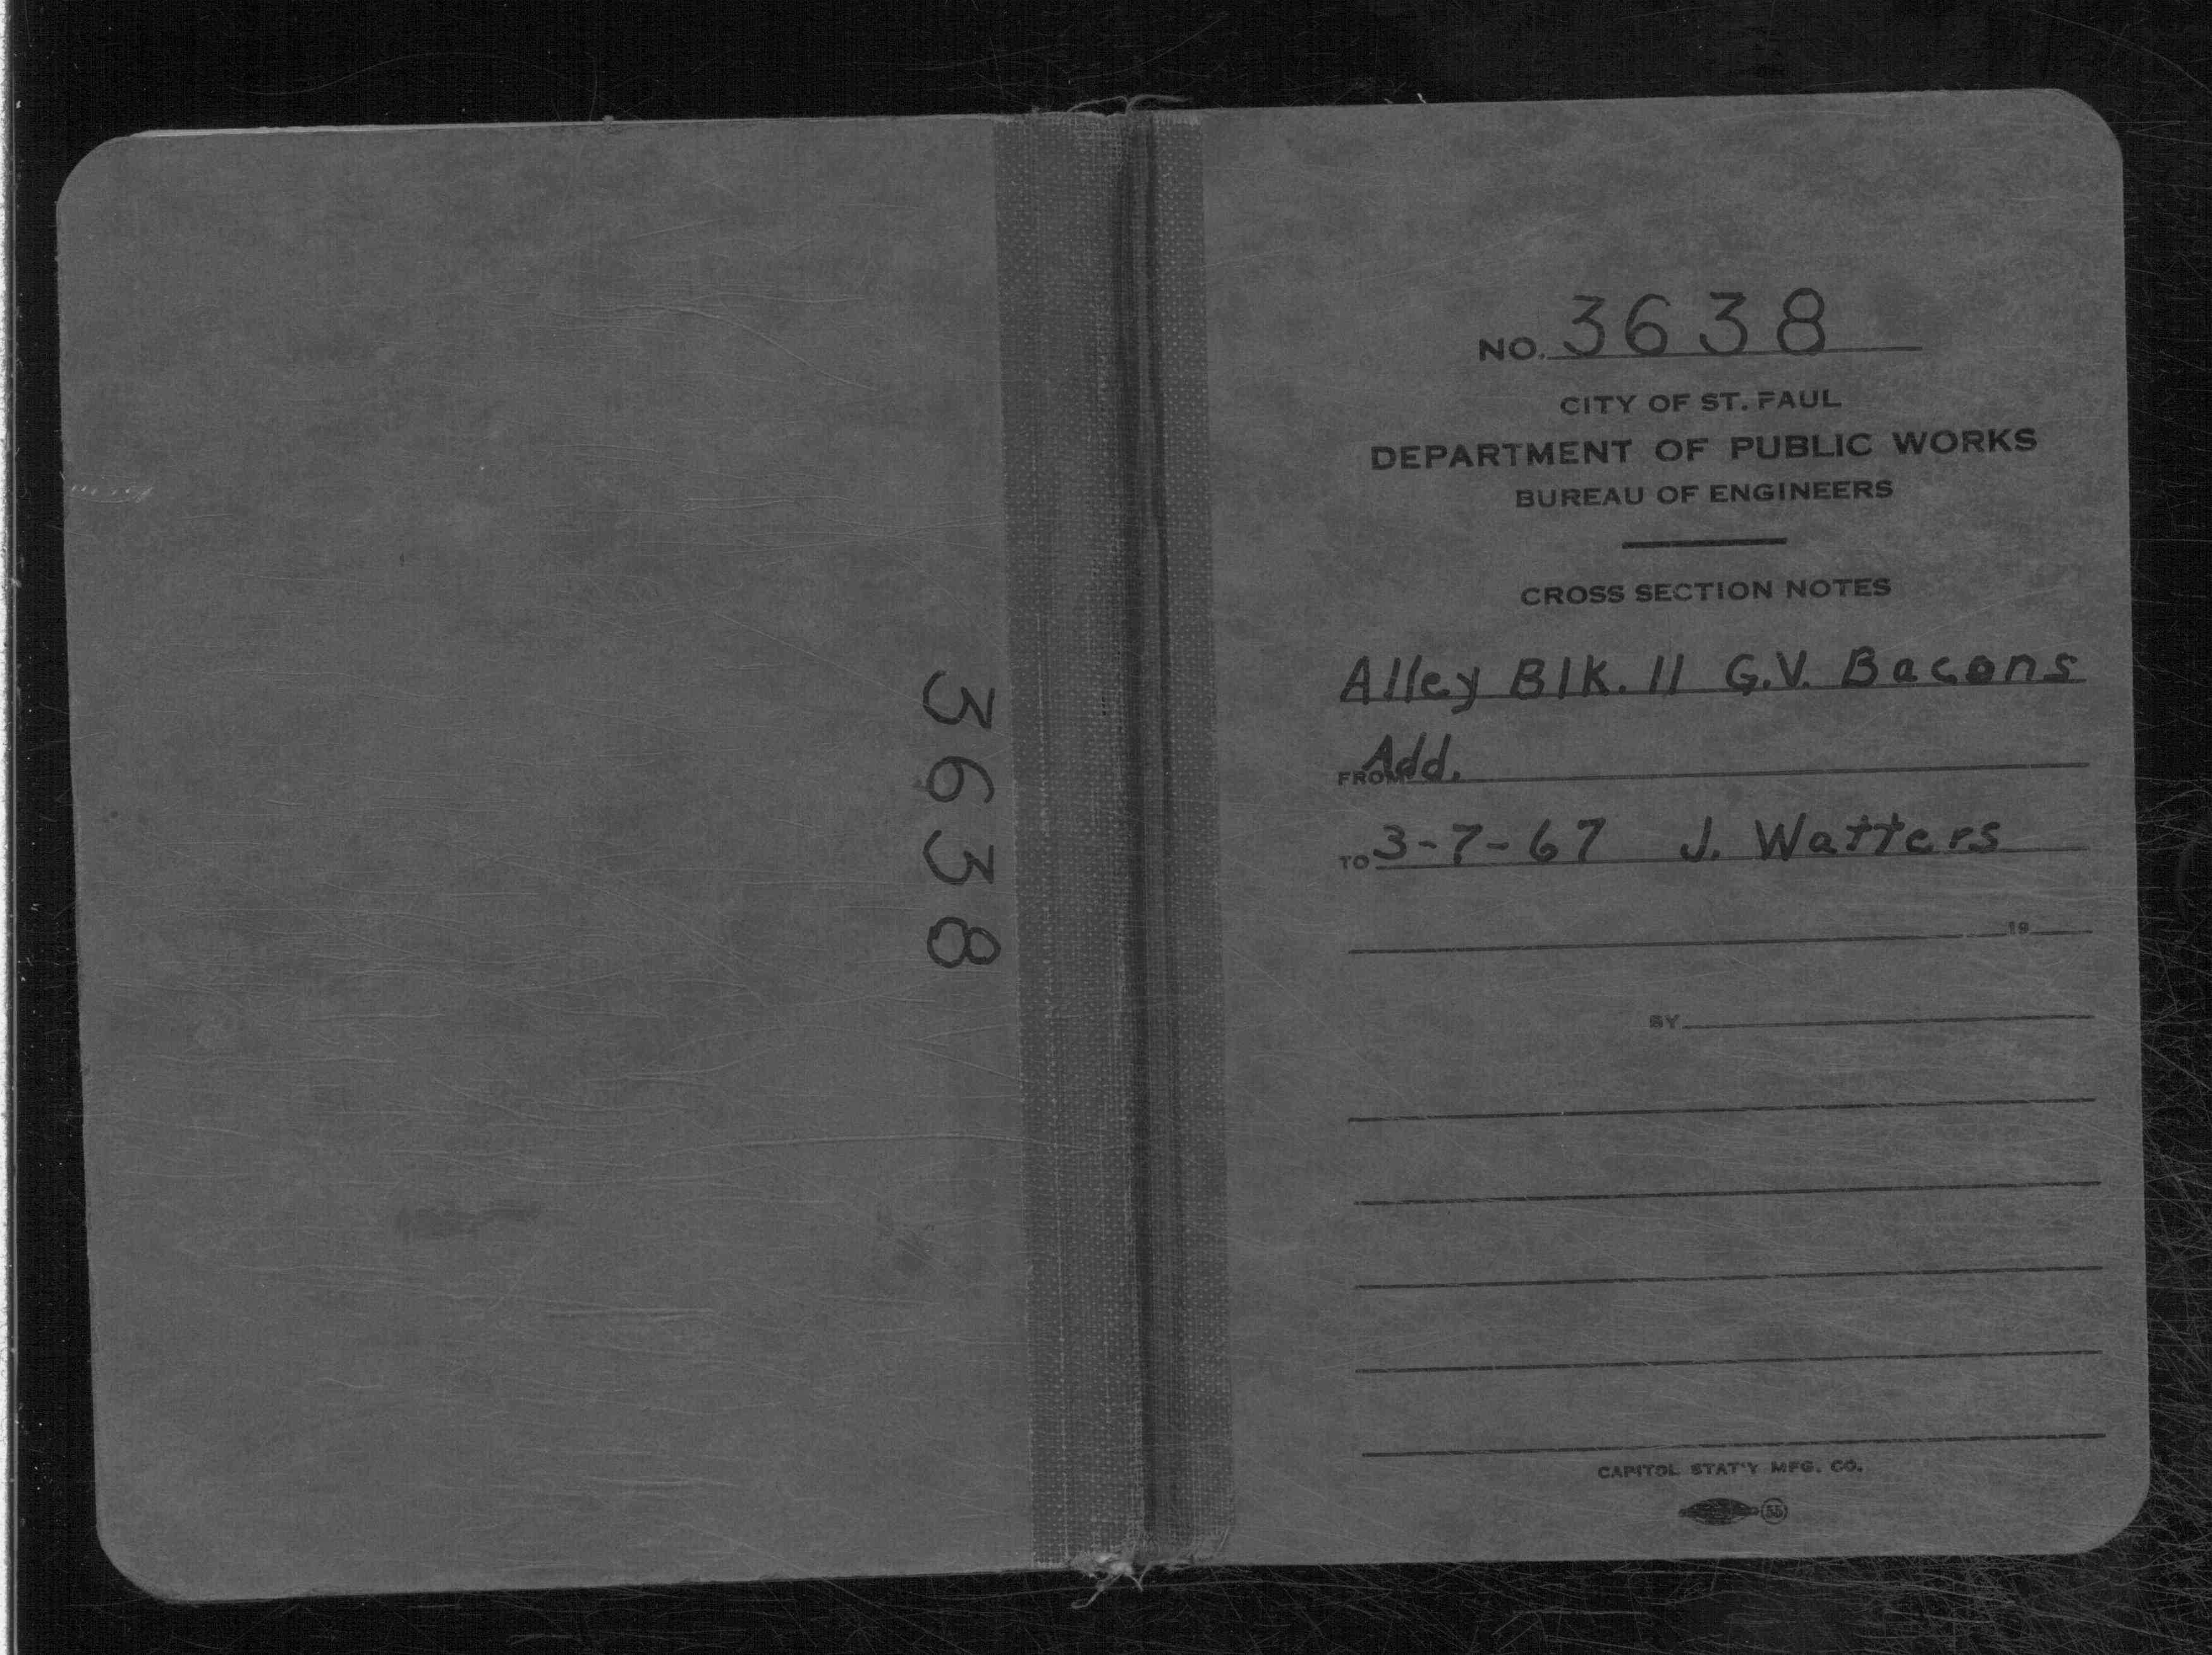 3638
NO. 3638
CITY OF ST. PAUL
DEPARTMENT OF PUBLIC WORKS
BUREAU OF ENGINEERS
CROSS SECTION NOTES
Alley Blk. 11 G.V. Bacons
FROM Add.
TO 3-7-67 J. Watters
19
BY
CAPITOL STAT'Y MFG. CO.
55